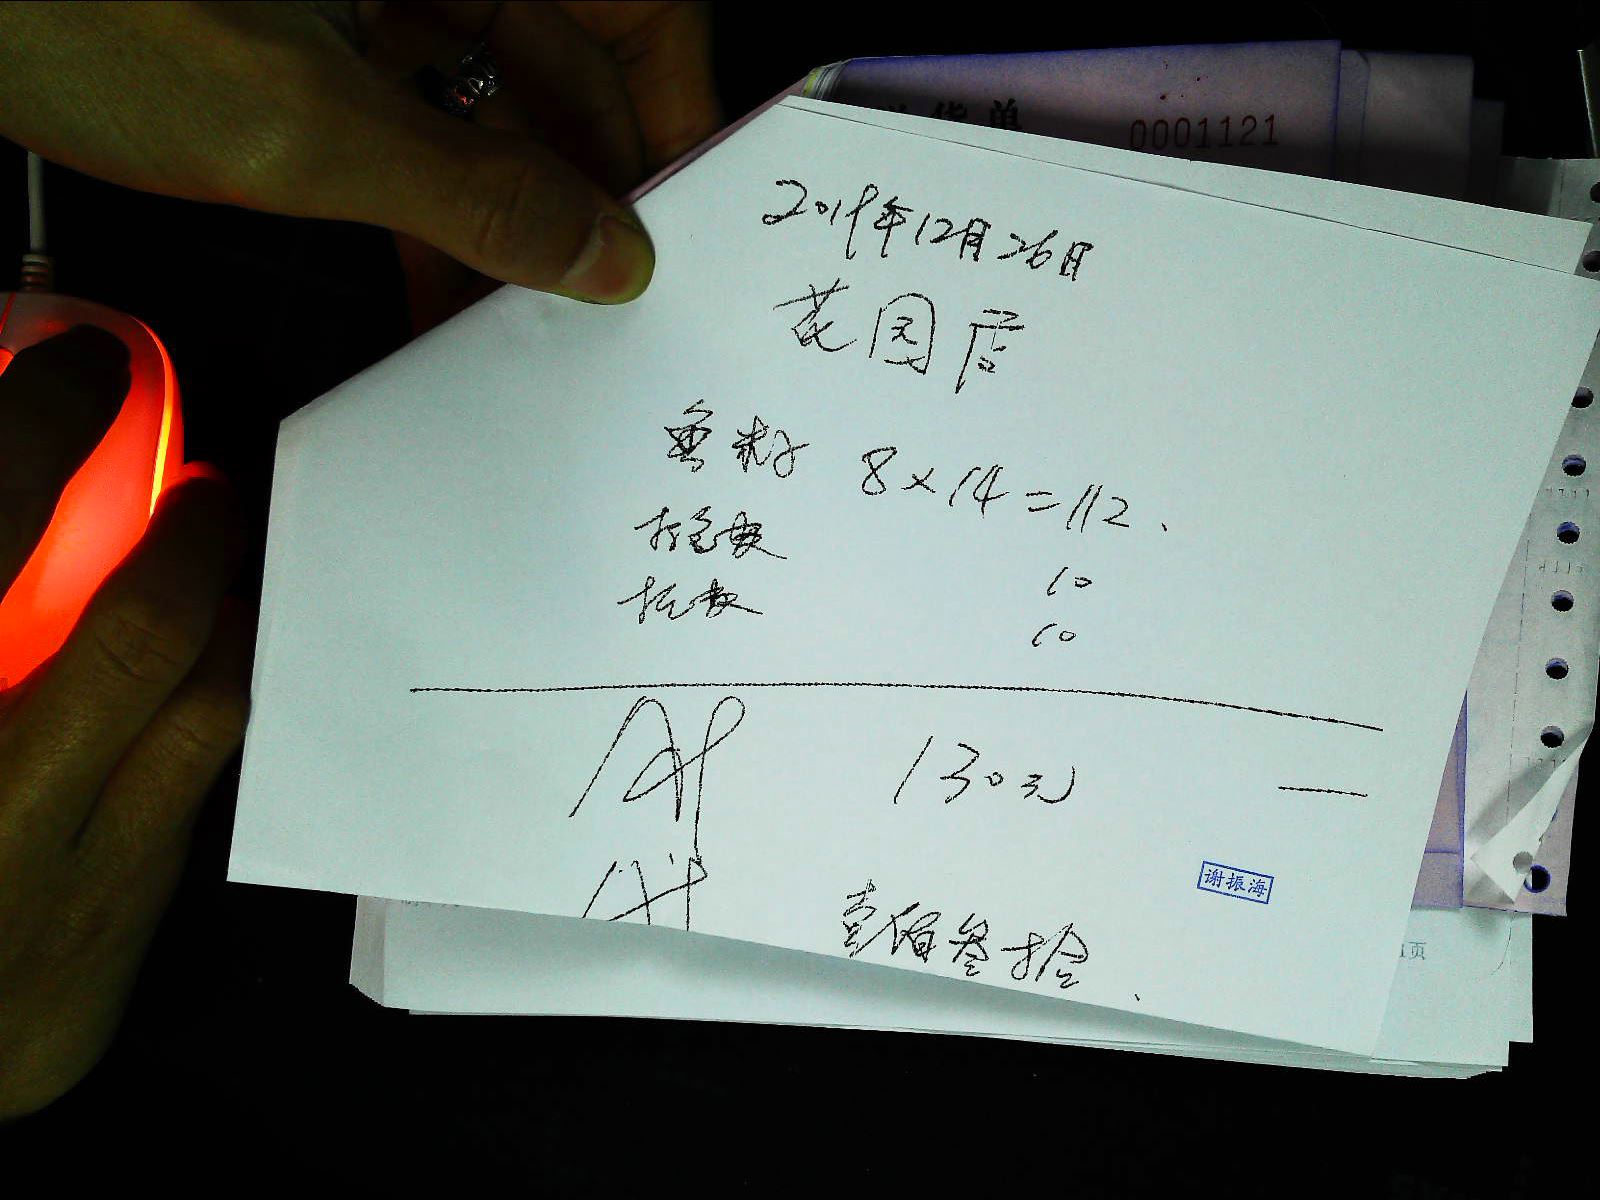 货单
0001121
2019年12月26日
花园店
鱼籽 8×14=112、
打包费 10
托费 10
合计 130元 —
谢振海
壹佰叁拾
1页